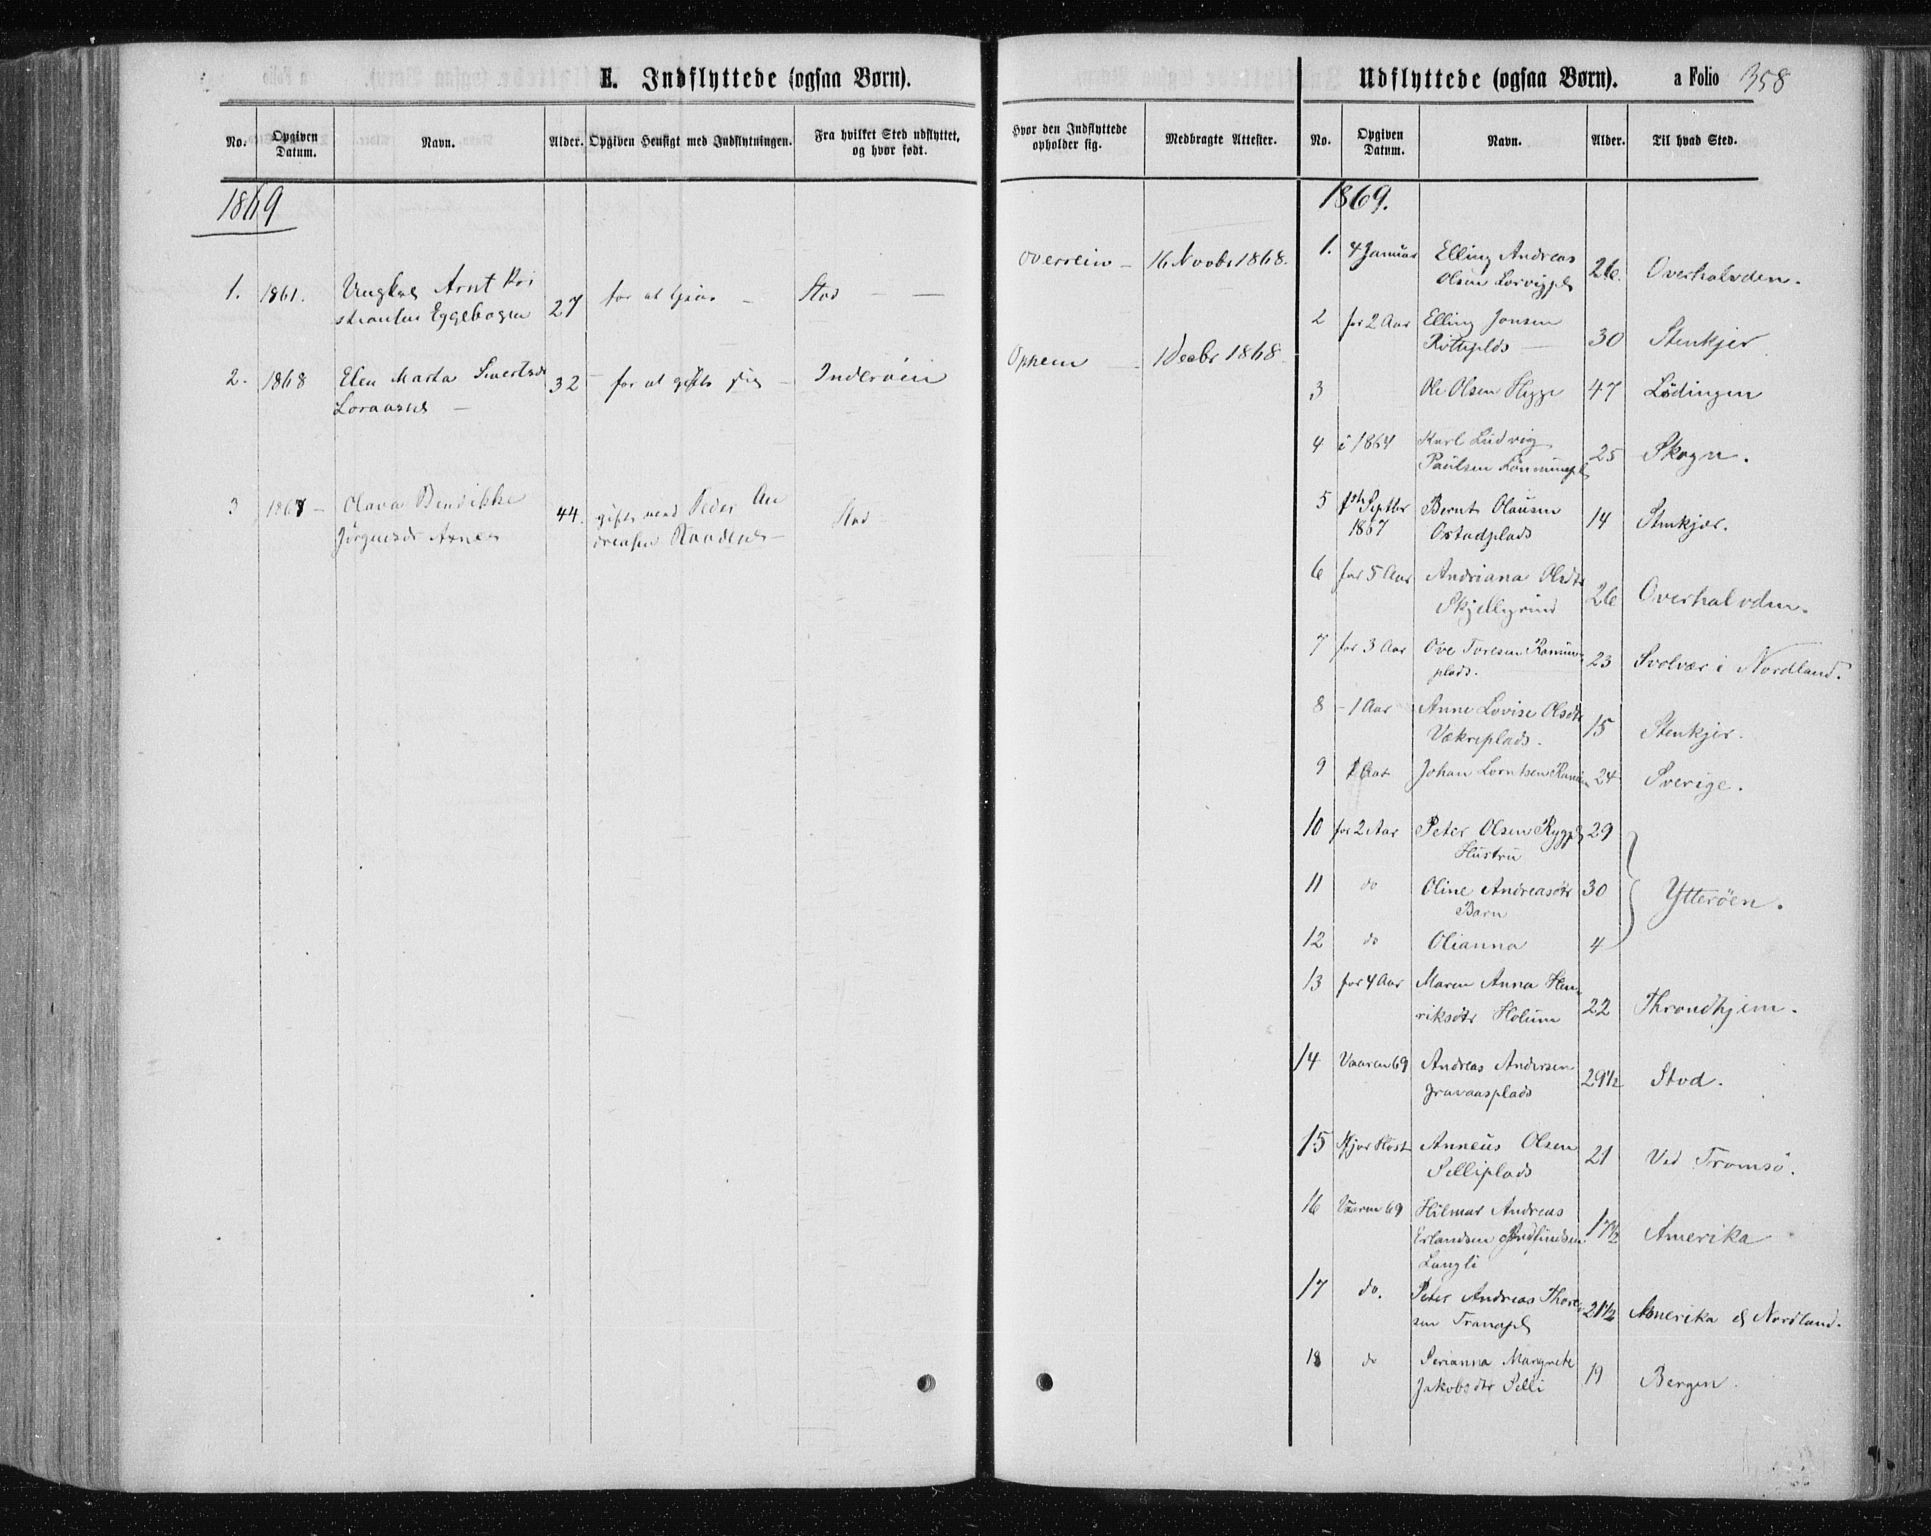 E. Indflyttede (ogsaa Børn).
No. Opgiven Datum. Navn. Alder. Opgiven Hensigt med Indflytningen. Fra hvilket Sted udflyttet, og hvor født. Hvor den Indflyttede opholder sig. Medbragte Attester.
1869
1. 1861. Ungkarl Arnt Kri 27 for at tjene Stod Overrein 16 Novbr 1868.
stiansen Eggebogen
2. 1868 Elen Marta Sivertsdr 32 for at gifte sig Inderøen Oppem 1 Decbr 1868
3 1868 Olava Bendikke 44. gift med Peder An Stod
Jørgensdr dreasen
Udflyttede (ogsaa Børn). a Folio 358
No. Opgiven Datum. Navn. Alder. Til hvad Sted.
1869.
1. 4 Januar Elling Andreas 26. Overhalvden.
Olsen
2 for 2 Aar Elling Jonsen 30 Stenkjer
3 Ole Olsen Hegge 47 Lødingen
4 i 1864 Karl Ludvig 25 Skogn.
Paulsen
5 Septbr 1867 Bernt Olausen 14 Stenkjer.
Østadplads
6 for 5 Aar Andriana Olsdtr 26 Overhalvden.
Skjellegrind
7 for 3 Aar Ove Toresen 23 Svolvær i Nordland.
plads.
8 - 1 Aar Anne Lovise Olsdtr 15 Stenkjer.
Vækreplads.
9 1 Aar Johan Lorntsen 24 Sverige.
10 for 2 Aar Peter Olsen 29
Hustru
11 do Oline Andreasdtr 30 Ytterøen.
Barn
12 do Olianna 4
13 for 4 Aar Maren Anna Hen 22 Throndhjem.
riksdtr Holum
14 Vaaren 69 Andreas Andersen 29 1/2 Stod.
Gravaasplads
15 Ifjor Høst Anneus Olsen 21 Ved Tromsø.
Selliplads
16 Vaaren 69 Hilmar Andreas 17 1/2 Amerika
Erlandsen
Langli
17 do. Peter Andreas Thore 21 1/2 Amerika & Nordland.
sen Tranapl
18 do Serianna Margrete 19 Bergen.
Jakobsdtr Selli